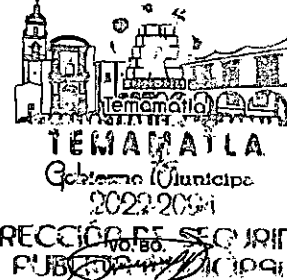 Temamatla
TEMAMATLA
Gobierno Municipa
2022-2024
RECCIÓN DE SEGURID
VO. BO.
PUB